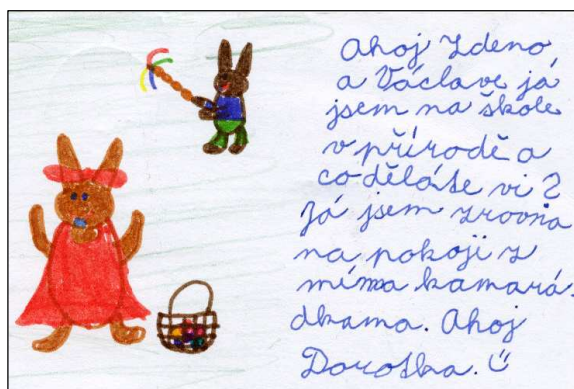 Ahoj Zdeno
a Václave já
jsem na škole
v přírodě a
co děláte vi?
Já jsem zrovna
na pokoji z
míma kamará-
dkama. Ahoj
Dorotka. ☺